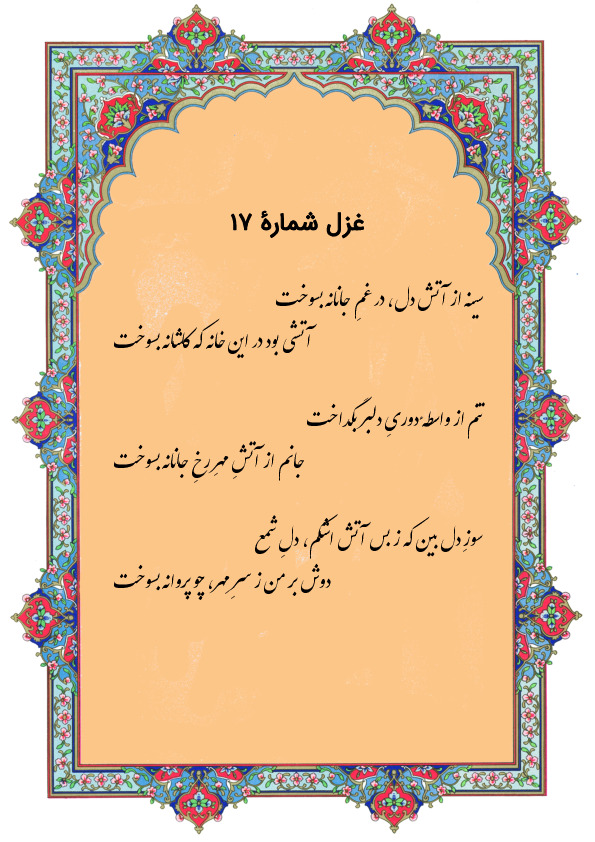 غزل شمارهٔ ۱۷
سینه از آتش دل، در غمِ جانانه بسوخت
آتشی بود در این خانه که کاشانه بسوخت
تنم از واسطهٔ دوریِ دلبر بگداخت
جانم از آتشِ مهرِ رخِ جانانه بسوخت
سوزِ دل بین که ز بس آتش اشکم، دلِ شمع
دوش بر من ز سرِ مهر، چو پروانه بسوخت